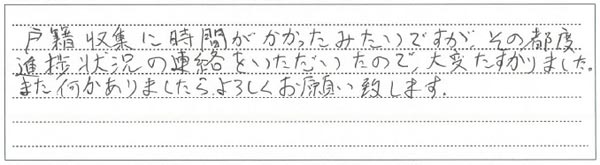 戸籍収集に時間がかかったみたいですが、その都度
進捗状況の連絡をいただいたので、大変たすかりました。
また何かありましたらよろしくお願い致します。